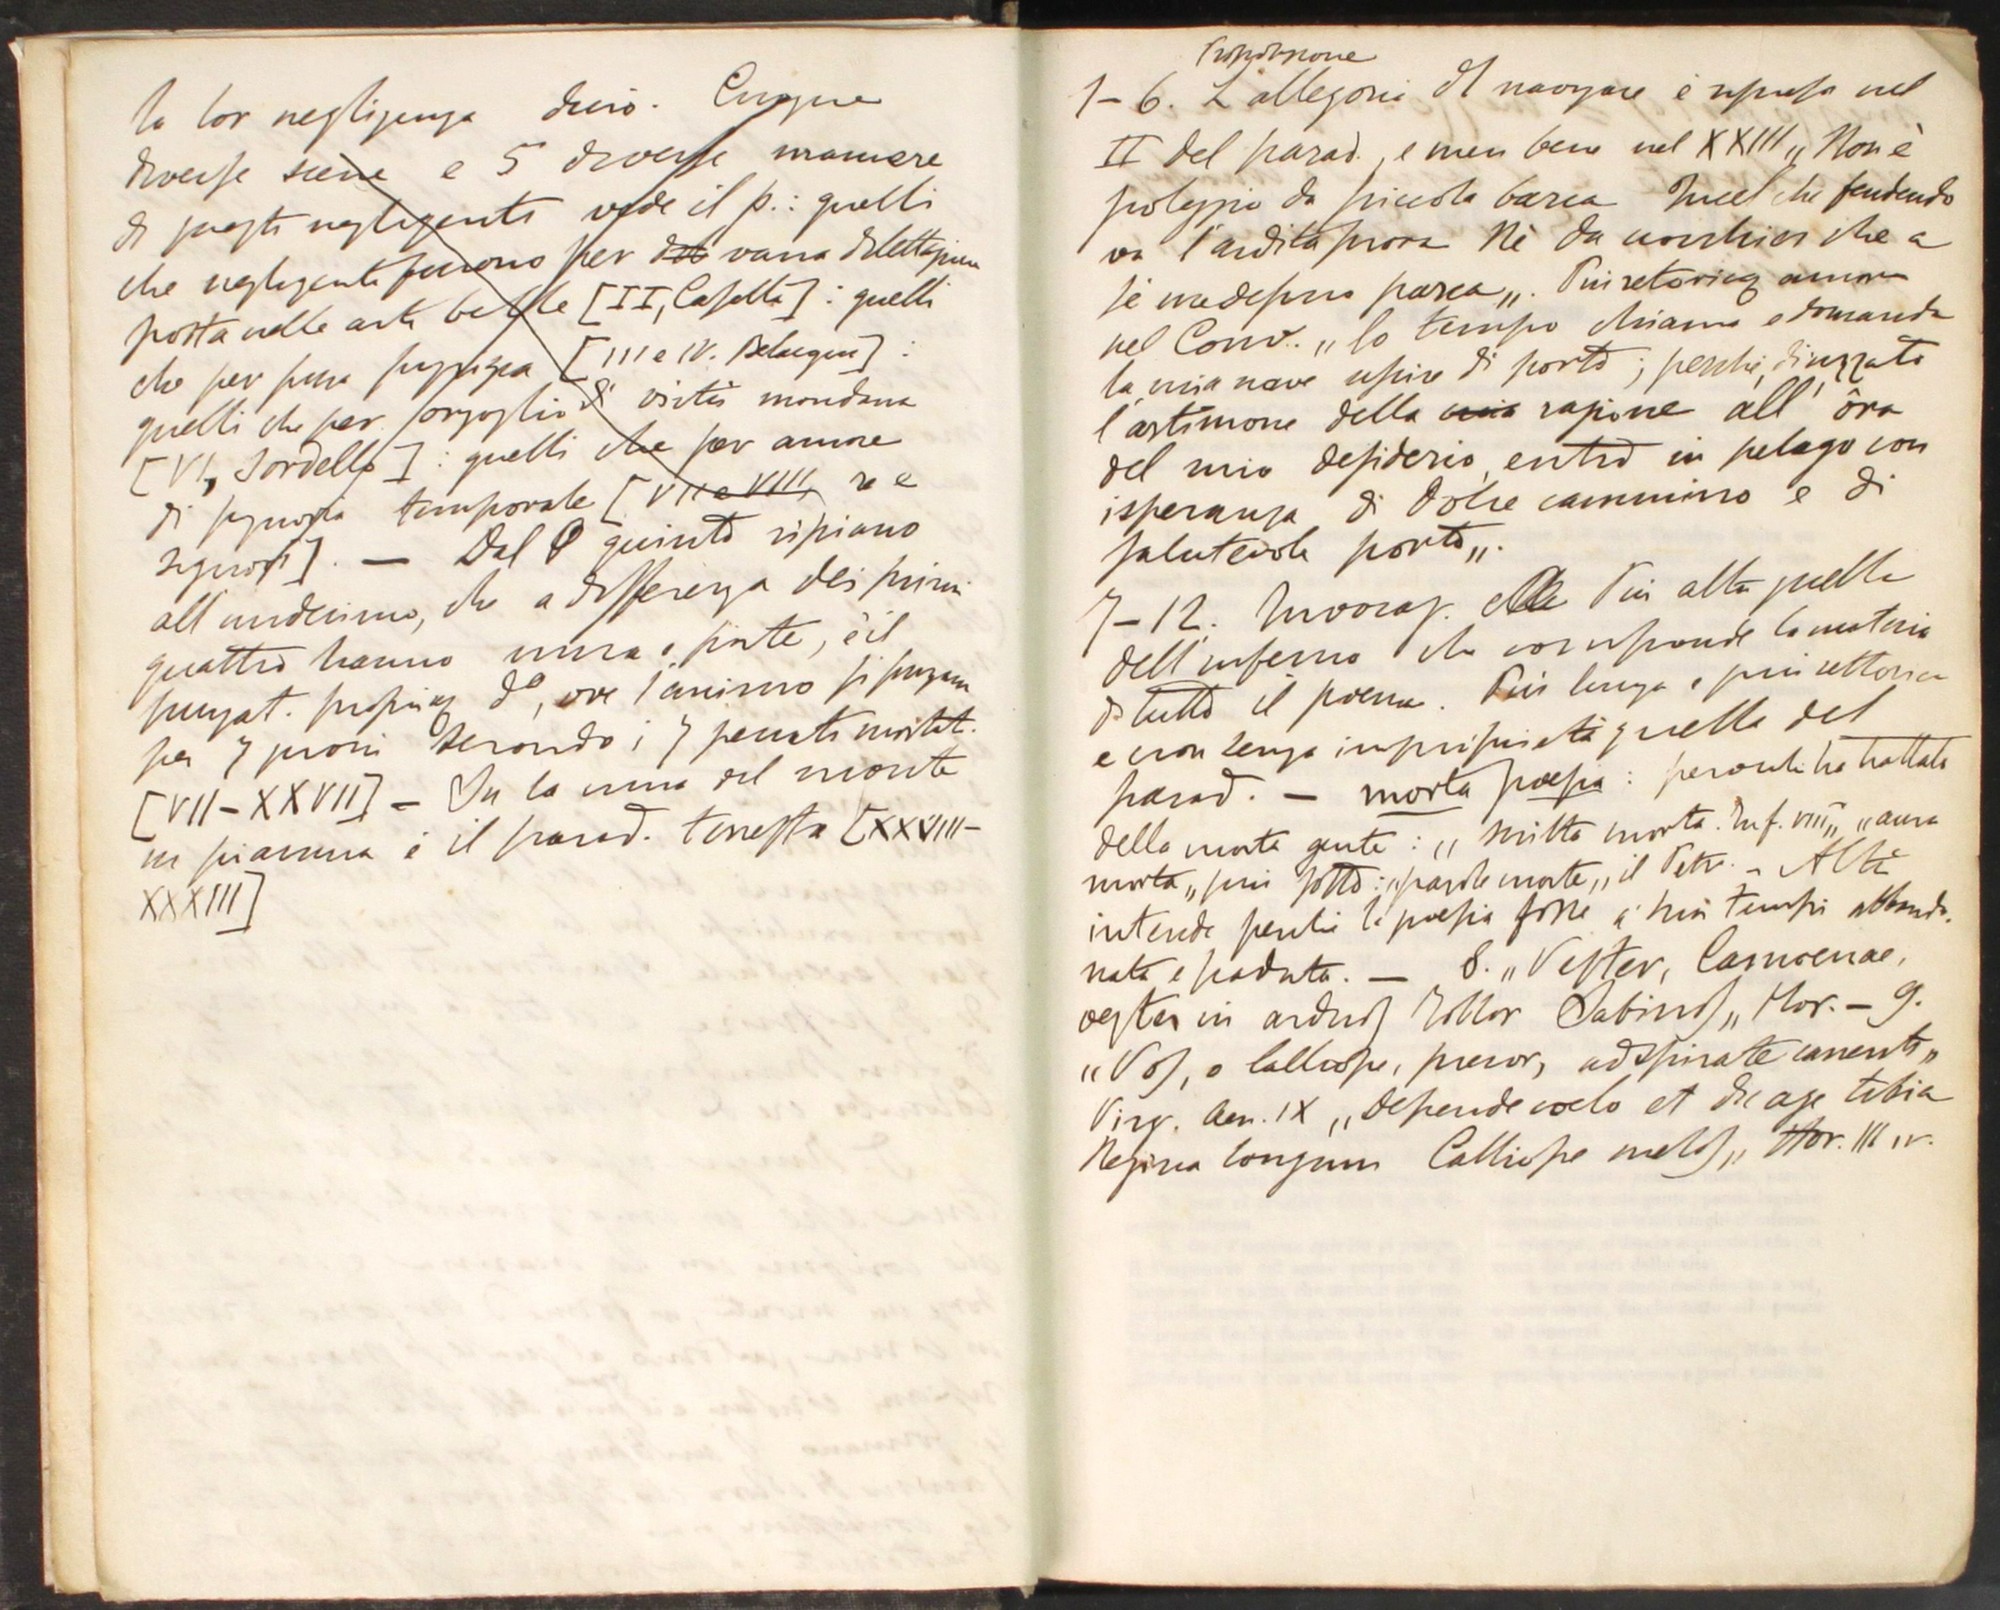 la lor negligenza durò. Cinque
diverse scene e 5 diverse maniere
di questi negligenti vede il p.: quelli
che negligenti furono per vana dilettazione
posta nelle arti belle [II, Casella]: quelli
che per pura pigrizia [III e IV. Belacqua]:
quelli che per orgoglio di virtù mondana
[VI, Sordello]: quelli che per amore
di signoria temporale [VII e VIII, re e
signori]. — Dal quinto ripiano
all'undecimo, che a differenza dei primi
quattro hanno mura e porte, è il
purgat. propriam. do, ove l'animo si purga
per 7 gironi secondo i 7 peccati mortali.
[VII-XXVII] - Su la cima del monte
in pianura è il parad. terrestre [XXVIII-
XXXIII]
Proposizione
1-6. L'allegoria del navigare è ripresa nel
II del parad., e men bene nel XXIII „Non è
poleggio da piccola barca Quel che fendendo
va l'ardita prora Nè da nocchier che a
sè medesmo parca„. Più retorica ancora
nel Conv. „lo tempo chiama e domanda
la mia nave uscire di porto; perchè, dirizzato
l'artimone della mia ragione all' ôra
del mio desiderio, entro in pelago con
isperanza di dolce cammino e di
salutevole porto„.
7-12. Invocaz. Più alta quella
dell'inferno che corrisponde la materia
di tutto il poema. Più lunga e più rettorica
e non senza improprietà quella del
parad. — morta poesia: perocchè ha trattato
della morta gente: „scritta morta. Inf. VIII„ „aura
morta„ più sotto: „parole morte„ il Petr. - Altri
intende perchè la poesia fosse a' suoi tempi abbando-
nata e scaduta. — 8. „Vester, Camoenae,
vester in arduos Tollor Sabinos„ Hor. — 9.
„Vos, o Calliope, precor, adspirate canenti„
Virg. Aen. IX „Descende coelo et dic age tibia
Regina longum Calliope melos„ Hor. III, IV.